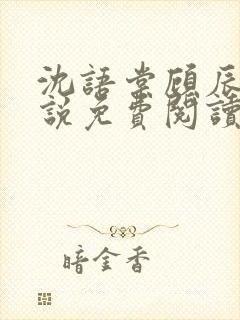 沈語棠顧辰
說免費閱讀
暗金香